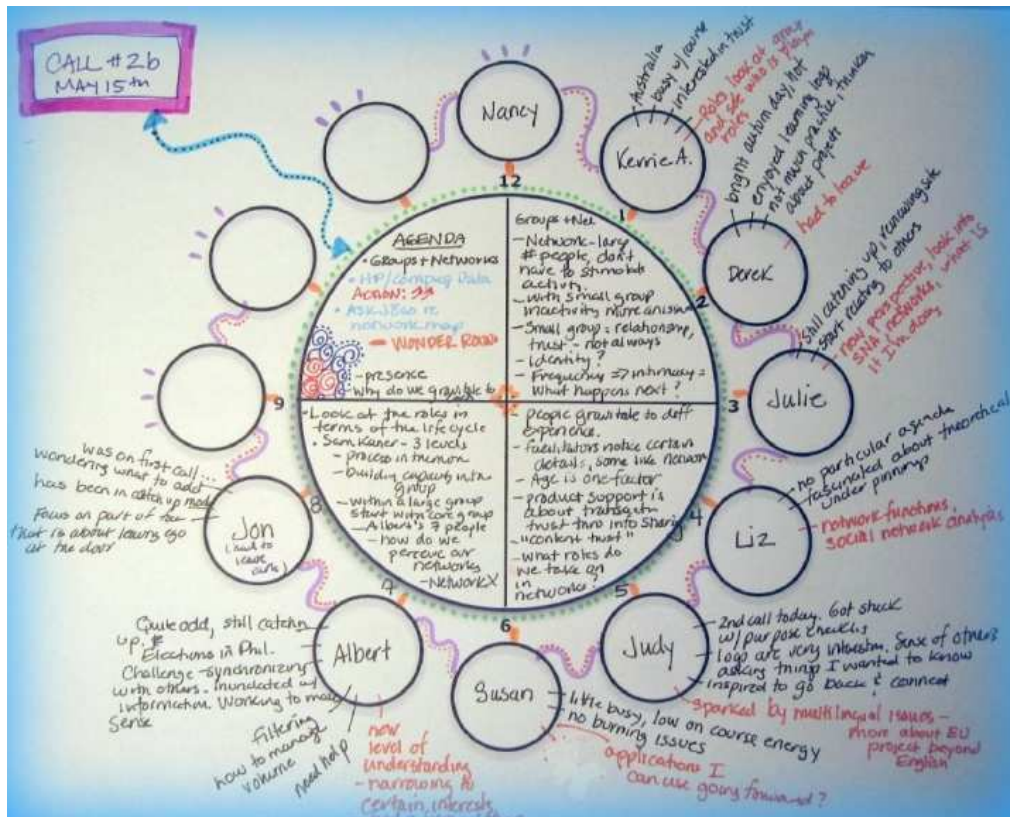 CALL #2b
MAY 15TH
Nancy
Kerrie A.
Australia
busy w/course
interested in trust
Roles, look at
and see who is
roles
Derek
bright autumn day, hot
enjoyed learning logs
not much practice, thinking
about project
had to leave
Julie
Still catching up, reviewing site
start relating to others
new perspective, look into
SNA, networks,
if I'm doing
what is
Liz
no particular agenda
fascinated about theoretical
under pinnings
network functions,
social network analysis
Judy
2nd call today. Got stuck
w/purpose
Logs are very Sense of others
asking things I wanted to know
inspired to go back & connect
sparked by multilingual issues –
more about EU
project beyond
English
Susan
little busy, low on course energy
no burning issues
applications I
can use going forward?
Albert
Quite odd, still catchin
up.
Elections in Phil.
Challenge – synchronizing
with others. Inundated w/
information. Working to make
Sense
filtering
how to manage
volume
need help
new
level of
understanding
– narrowing to
certain, interests
Jon
(had to
leave
was on first call...
wondering what to add
has been in catch up mode
Focus on part of
that is about leaving ego
at the door
12
1
2
3
4
5
6
7
8
9
AGENDA
• Groups + Networks
• HP/Compaq Data
ACTION:
• Ask re
network map
– WONDER ROUND
– presence
Why do we gravitate to
Groups + Net
– Network – large
# people, don't
have to stimulate
activity.
– with small group
inactivity more
– Small group = relationship,
trust – not always
– Identity?
– Frequency => intimacy =
What happens next?
• Look at the roles in
terms of the lifecycle
• Sam Kaner – 3 levels
– process
– building capacity in the
group
– within a large group
start with core group
– Albert's 7 people
– how do we
perceive our
networks
– NetworkX
– people gravitate to diff
experience.
– facilitators notice certain
details, some like network
– Age is one factor
– product support is
about
trust thru info sharing
– "content trust"
– what roles do
we take on
in
networks?